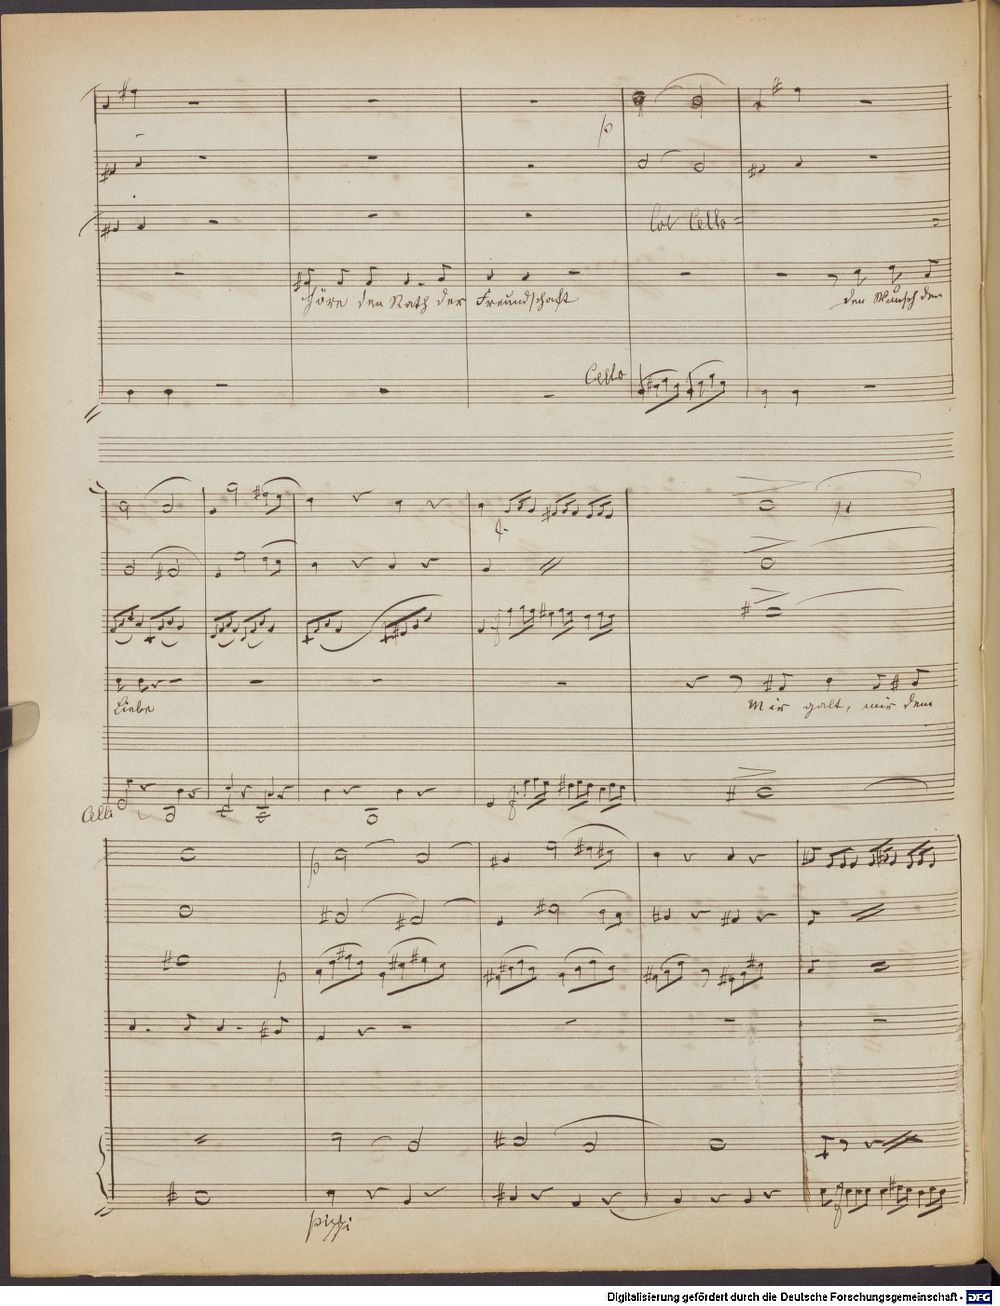 p
Col Cello =
Höre den Rath der Freundschaft
den Wunsch den
Cello
f
Liebe
Mir galt, mir dem
f
Celli
f
p
p
pizzi
f
Digitalisierung gefördert durch die Deutsche Forschungsgemeinschaft - DFG